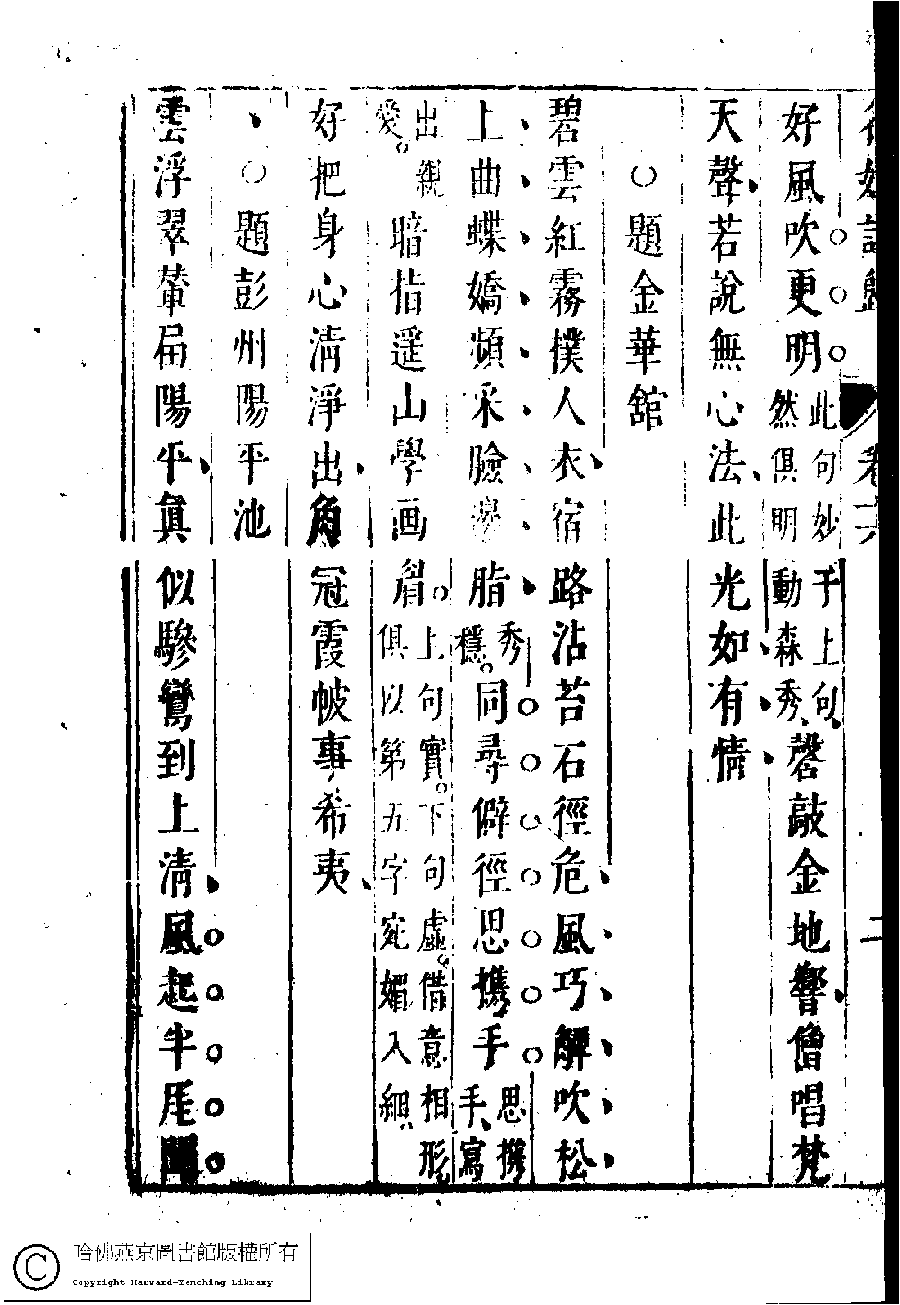 卷
二
好風吹更明此句妙于上句然俱明動森秀磬敲金地響僧唱梵
天聲若說無心法此光如有情
○題金華館
碧雲紅霧撲人衣宿路沾苔石徑危風巧解吹松
上曲蝶嬌頻采臉邊脂秀穩。同尋僻徑思擕手思擕手寫
出親愛。暗指遥山學画眉上句實。下句虛。借意相形俱以第五字宛媚入細
好把身心清淨出角冠霞帔事希夷
○題彭州陽平池
雲浮翠輦屆陽平眞似驂鸞到上清風起半厓聞
哈佛燕京圖書館版權所有
Copyright Harvard-Yenching Library